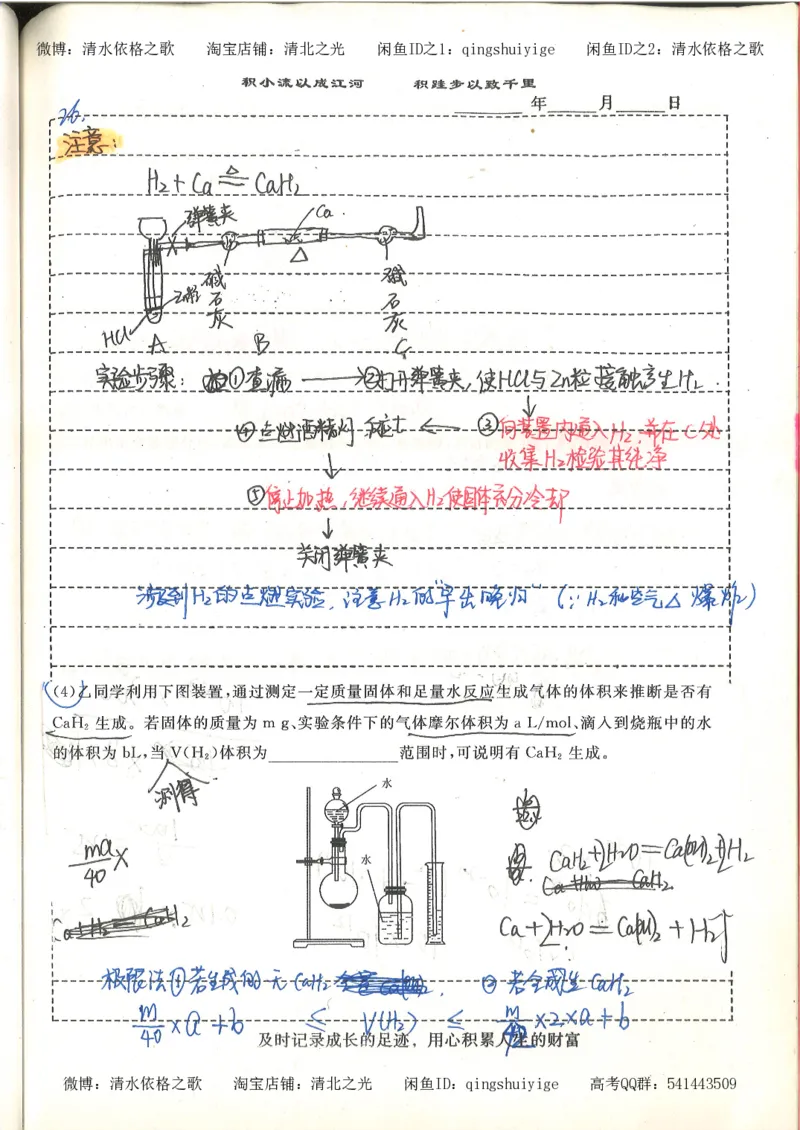 微博：清水依格之歌 淘宝店铺：清北之光 闲鱼ID之1：qingshuiyige 闲鱼ID之2：清水依格之歌
积小流以成江河 积跬步以致千里
年 月 日
26.
注意：
H₂ + Ca ≜ CaH₂
弹簧夹 Ca
碱石灰 碱石灰
Zn粒
HCl
A B C
实验步骤： ①查漏 → ②打开弹簧夹，使HCl与Zn粒接触产生H₂
④点燃酒精灯 ← ③向装置内通入H₂，并在C处
收集H₂检验其纯净
⑤停止加热，继续通入H₂使固体充分冷却
关闭弹簧夹
涉及到H₂的点燃实验，注意H₂的"早出晚归"（∵H₂和空气△爆炸）
(4)乙同学利用下图装置，通过测定一定质量固体和足量水反应生成气体的体积来推断是否有
CaH₂ 生成。若固体的质量为 m g、实验条件下的气体摩尔体积为 a L/mol、滴入到烧瓶中的水
的体积为 bL，当 V(H₂)体积为 范围时，可说明有 CaH₂ 生成。
测得
水
水
ma/40 ×
CaH₂+2H₂O=Ca(OH)₂+2H₂
Ca+2H₂O=Ca(OH)₂+H₂↑
极限法①若生成的无CaH₂ ②若全生成CaH₂
m/40 ×a+b ≤ V(H₂) ≤ m/42 ×2×a+b
及时记录成长的足迹，用心积累人生的财富
微博：清水依格之歌 淘宝店铺：清北之光 闲鱼ID：qingshuiyige 高考QQ群：541443509